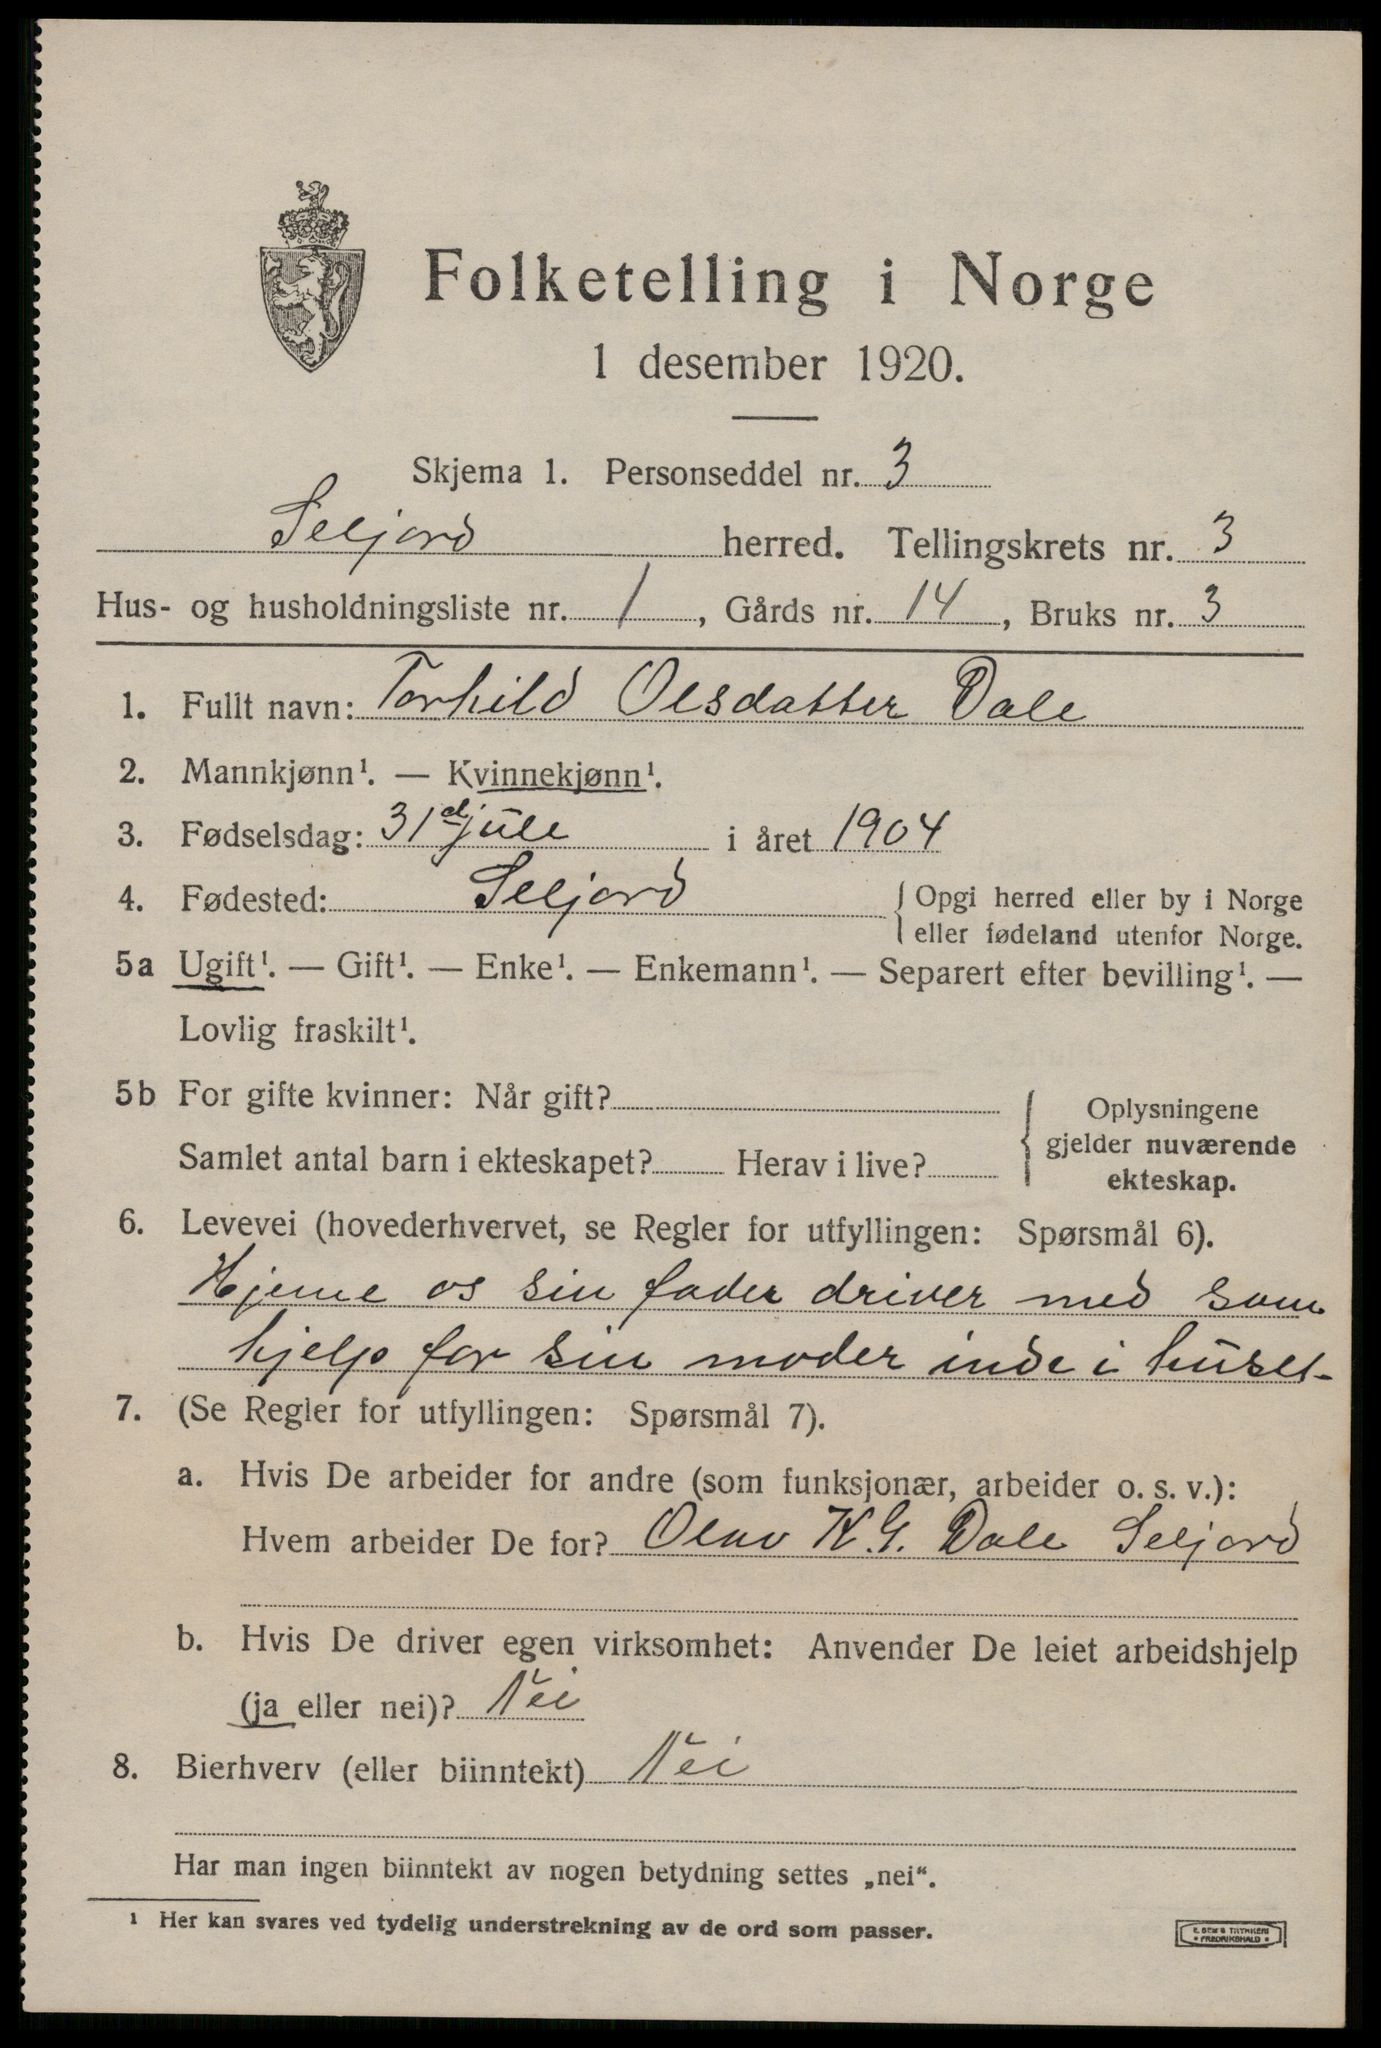 Folketelling i Norge
1 desember 1920.
Skjema 1. Personseddel nr. 3
Seljord herred. Tellingskrets nr. 3
Hus- og husholdningsliste nr. 1, Gårds nr. 14, Bruks nr. 3
1. Fullt navn: Torhild Olsdatter Dale
2. Mannkjønn¹. — Kvinnekjønn¹.
3. Fødselsdag: 31 juli i året 1904
4. Fødested: Seljord { Opgi herred eller by i Norge
eller fødeland utenfor Norge.
5a Ugift¹. — Gift¹. — Enke¹. — Enkemann¹. — Separert efter bevilling¹. —
Lovlig fraskilt¹.
5b For gifte kvinner: Når gift?
Samlet antal barn i ekteskapet? Herav i live?
{ Oplysningene
gjelder nuværende
ekteskap.
6. Levevei (hovederhvervet, se Regler for utfyllingen: Spørsmål 6).
Hjeme os sin fader driver med som
hjelp for sin moder inde i huset-
7. (Se Regler for utfyllingen: Spørsmål 7).
a. Hvis De arbeider for andre (som funksjonær, arbeider o. s. v.):
Hvem arbeider De for? Olav K.G. Dale Seljord
b. Hvis De driver egen virksomhet: Anvender De leiet arbeidshjelp
(ja eller nei)? Nei
8. Bierhverv (eller biinntekt) Nei
Har man ingen biinntekt av nogen betydning settes „nei“.
¹ Her kan svares ved tydelig understrekning av de ord som passer.
E. SEM'S TRYKKERI
FREDRIKSHALD